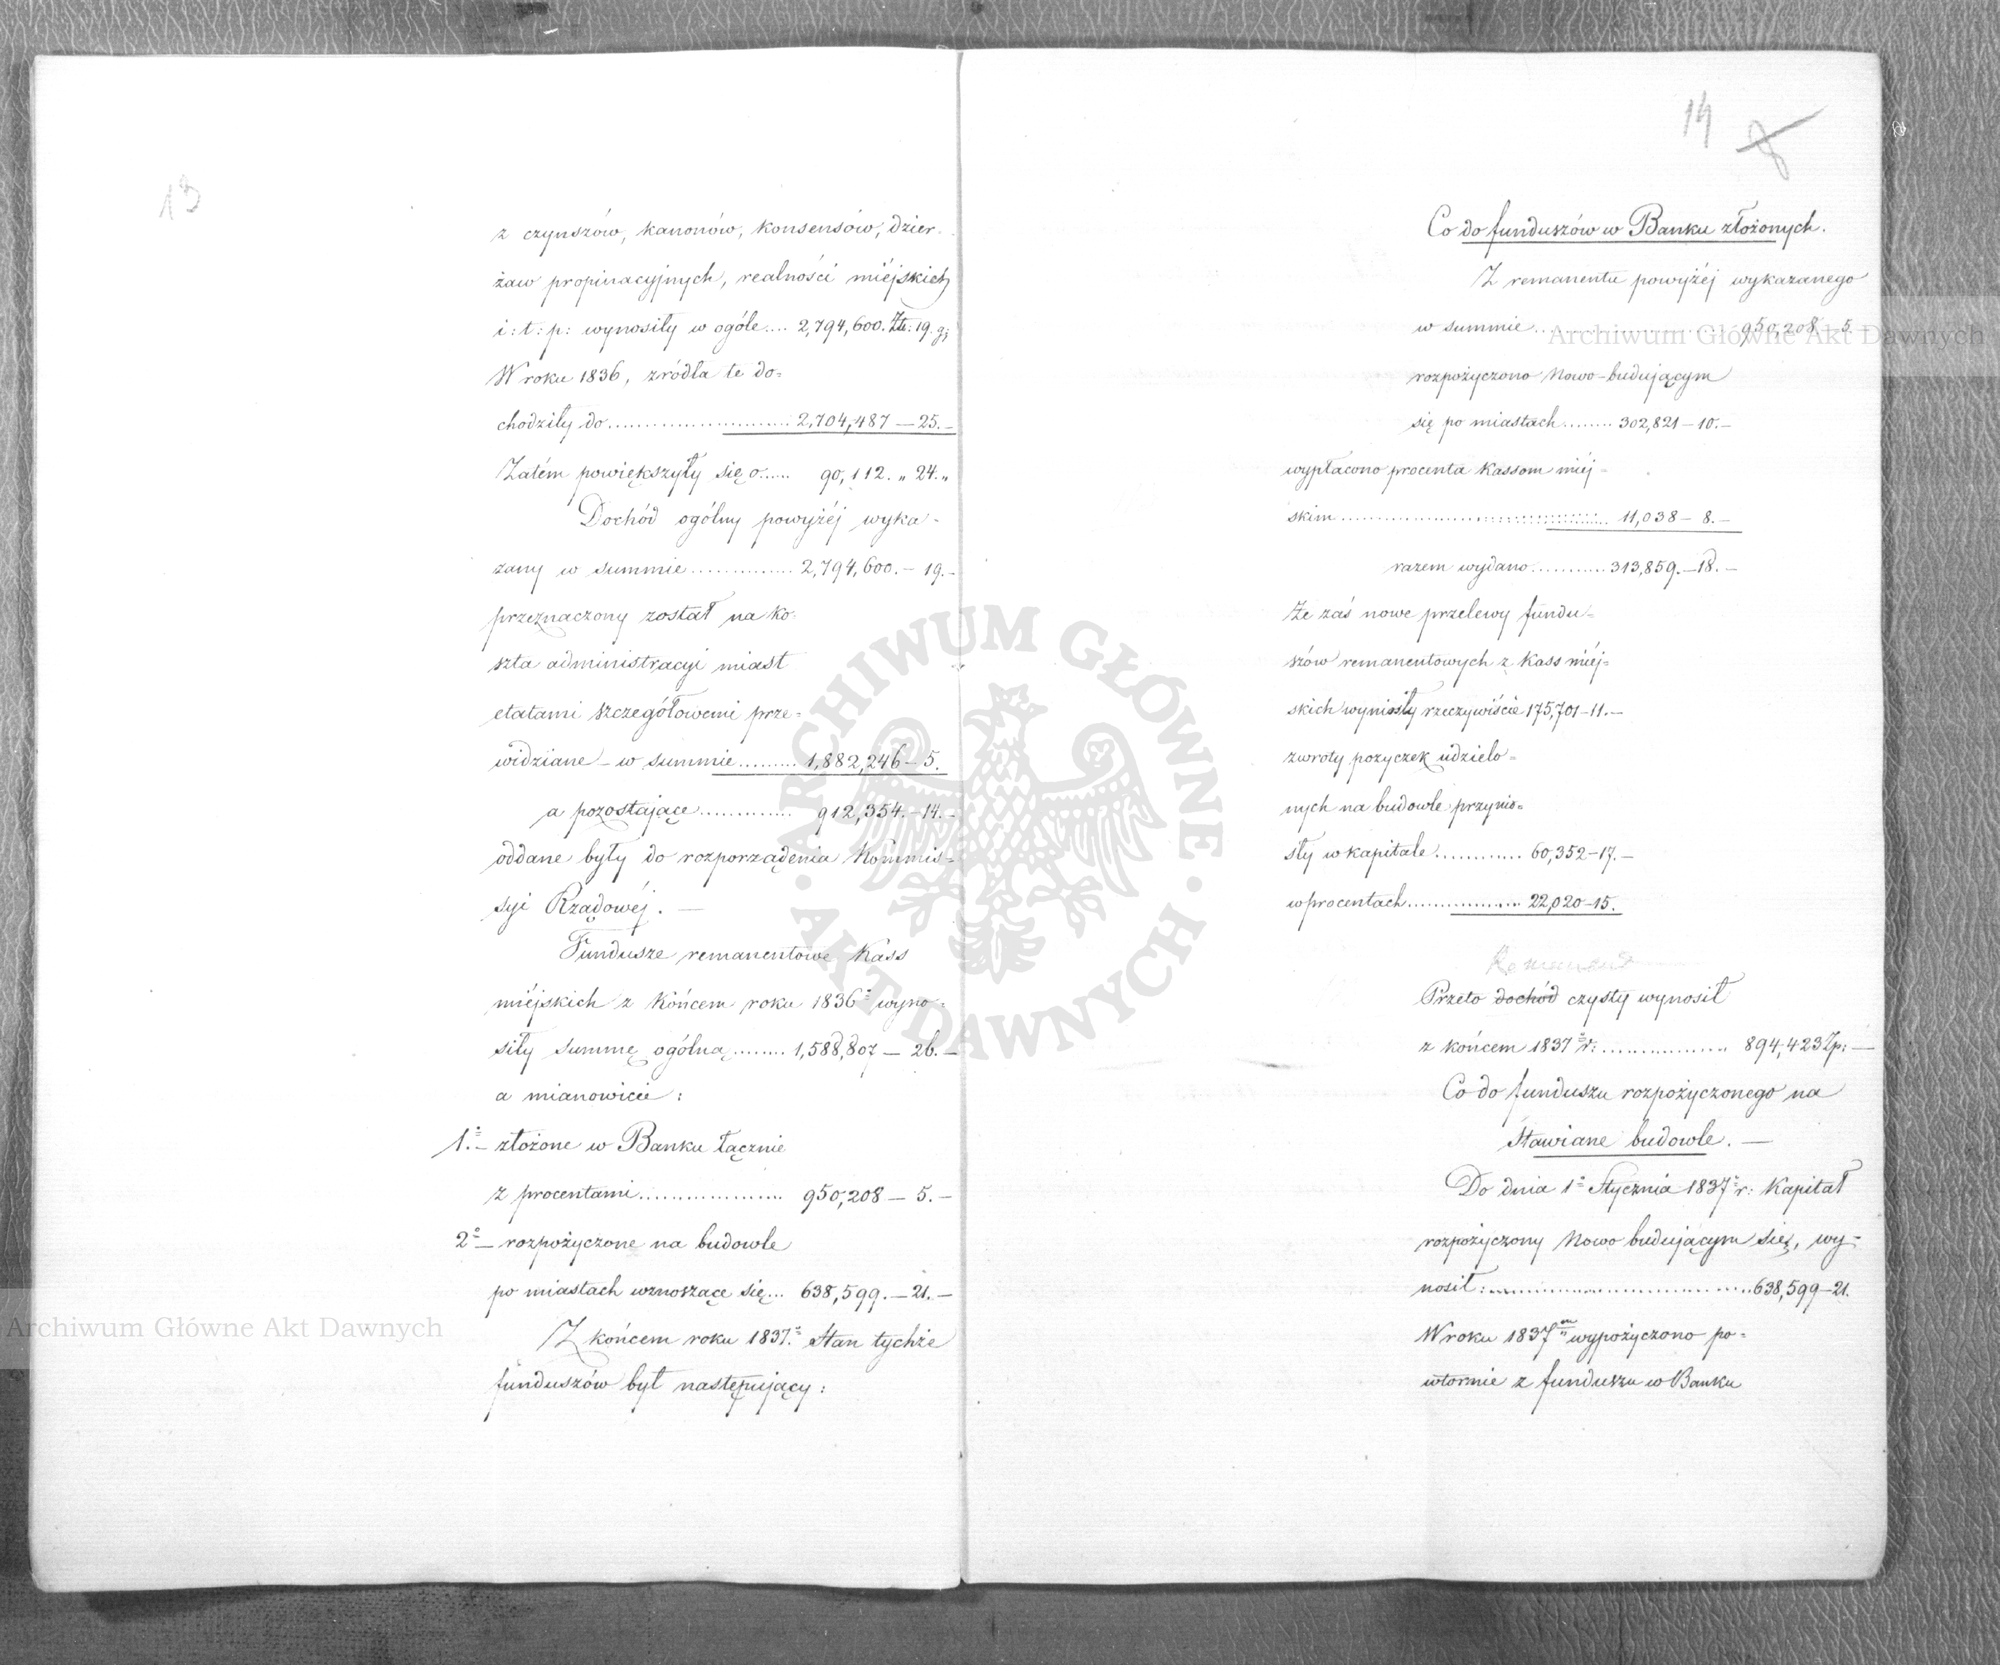 13
z czynszów, kanonów, konsensów, dzier-
żaw propinacyjnych, realności miéjskich
i: t: p: wynosiły w ogóle.... 2,794,600. Złt: 19. g;
W roku 1836, zródła te do=
chodziły do .......................... 2,704,487 — 25. –
Zatém powiększyły się o...... 90,112. „ 24. „
Dochód ogólny powyżéj wyka-
zany w summie............... 2,794,600. – 19. –
przeznaczony został na ko-
szta administracyi miast
etatami szczegółowemi prze=
widziane – w summie.......... 1,882,246 – 5.
a pozostające............. 912,354. – 14. –
oddane były do rozporządzenia Kommis=
syi Rządowéj. —
Fundusze remanentowe Kass
miéjskich z Końcem roku 1836° wyno-
siły summę ogólną........ 1,588,807 — 26. –
a mianowicie:
1.° – złożone w Banku łącznie
z procentami.................. 950,208 – 5. –
2° – rozpożyczone na budowle
po miastach wznoszące się... 638,599. – 21. –
Z końcem roku 1837.° Stan tychże
funduszów był następujący:
14
8
Co do funduszów w Banku złożonych.
Z remanentu powyżéj wykazanego
w summie.......................... 950,208 – 5. –
rozpożyczono Nowo-budującym
się po miastach........ 302,821 – 10. –
wypłacono procenta Kassom miéj=
skim............................. 11,038 – 8. –
razem wydano........... 313,859. – 18. –
że zaś nowe przelewy fundu=
szów remanentowych z Kass miéj=
skich wyniosły rzeczywiście 175,701 – 11. –
zwroty pożyczek udzielo=
nych na budowle przynio=
sły w kapitale............ 60,352 – 17. –
w procentach................ 22,020 – 15.
Remanent
Przeto dochód czysty wynosił
z końcem 1837° r:................ 894,423 Zp: —
Co do funduszu rozpożyczonego na
Stawiane budowle. —
Do dnia 1° Stycznia 1837° r: Kapitał
rozpożyczony Nowo budującym się, wy=
nosił:................................ 638,599 – 21.
W roku 1837m wypożyczono po=
wtornie z funduszu w Banku
Archiwum Główne Akt Dawnych
Archiwum Główne Akt Dawnych
ARCHIWUM GŁÓWNE
AKT DAWNYCH